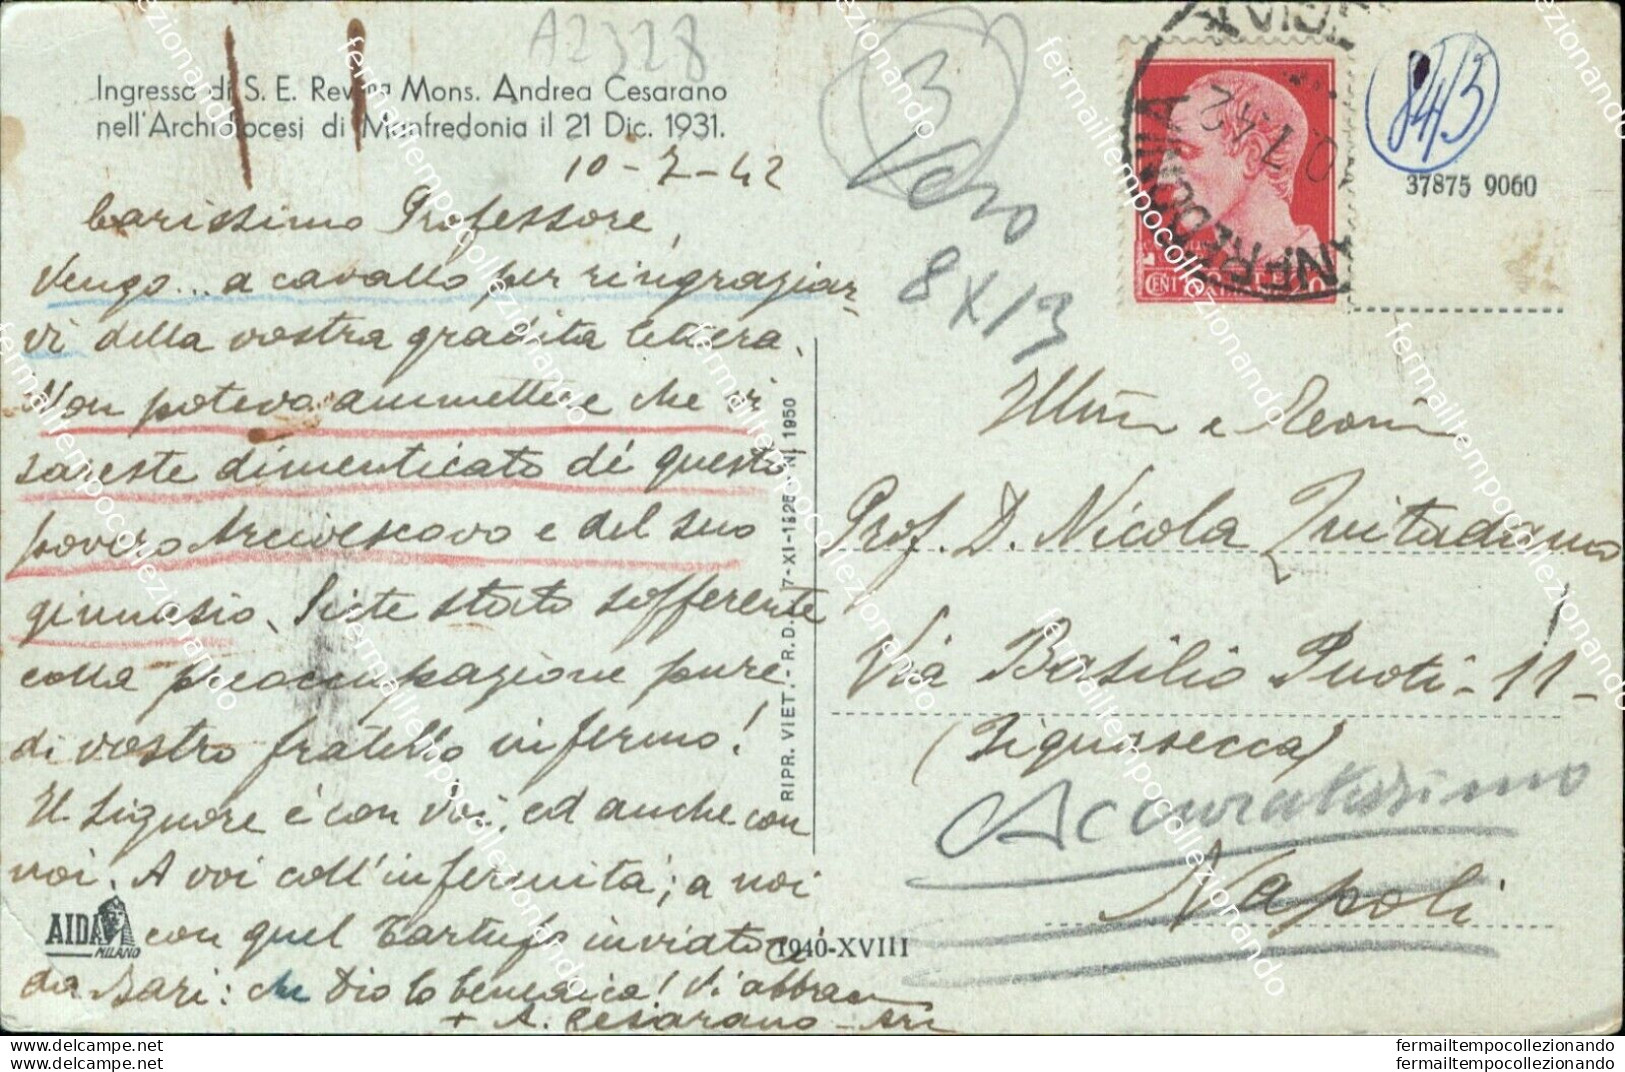 A2328
Ingresso di S. E. Rev.ma Mons. Andrea Cesarano
nell'Archidiocesi di Manfredonia il 21 Dic. 1931.
10-7-42
Carissimo Professore,
Vengo... a cavallo per ringraziar-
vi della vostra gradita lettera.
Non poteva ammettere che vi
sareste dimenticato di questo
povero Arcivescovo e del suo
ginnasio. Siete stato sofferente
colla preoccupazione pure
di vostro fratello infermo!
Il Signore è con voi, ed anche con
noi. A voi coll'infermità; a noi
con quel Tartufo inviato
da Bari: che Dio lo benedica! Vi abbraccio
+ A. Cesarano
AIDA
MILANO
1940-XVIII
RIPR. VIET. - R.D. 7-XI-1925 N. 1950
3
Vero
8 X 13
MANFREDONIA
10.7.42
CENT
843
37875 9060
Ill.mo e Rev.mo
Prof. D. Nicola Quitadamo
Via Basilio Puoti - 11 -
(Pignasecca)
Accuratissimo
Napoli
fermailtempocollezionando
fermailtempocollezionando
fermailtempocollezionando
fermailtempocollezionando